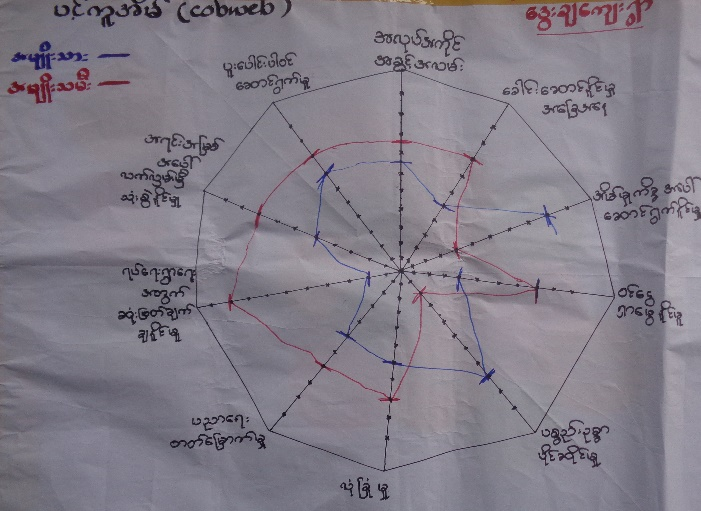 ပင့်ကူအိမ် (cobweb)
ဒွေးချကျေးရွာ
အမျိုးသား
အမျိုးသမီး
အလုပ်အကိုင်
အခွင့်အလမ်း
ခေါင်းဆောင်နိုင်မှု
အခြေအနေ
အိမ်မှုကိစ္စ အပေါ်
ဆောင်ရွက်နိုင်မှု
ဝင်ငွေ
ရှာဖွေနိုင်မှု
ပစ္စည်းဥစ္စာ
ပိုင်ဆိုင်မှု
လုံခြုံမှု
ပညာရေး
တတ်မြောက်မှု
ရပ်ရေးရွာရေး
အတွက်
ဆုံးဖြတ်ချက်
ချနိုင်မှု
အရင်းအမြစ်
အပေါ်
လက်လှမ်းမှီ
သုံးစွဲနိုင်မှု
ပူးပေါင်းပါဝင်
ဆောင်ရွက်မှု